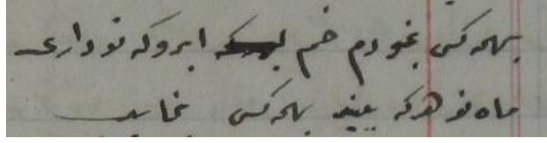 بهمه کس بنمودم خم ابرو که تو داری
ماه نو هر که ببیند بهمه کس بنماید